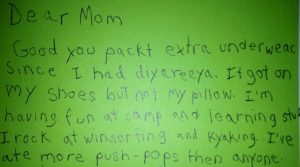 Dear Mom
Good you packt extra underwear
Since I had diyareeya. It got on
my shoes but not my pillow. I'm
having fun at camp and learning
I rock at winserfing and Kyaking. I've
ate more push-pops then anyone